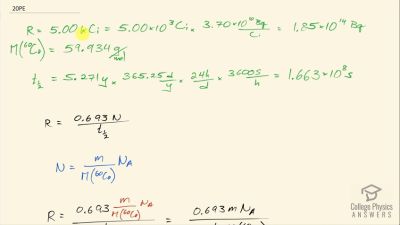 20PE
R = 5.00 kCi = 5.00×10³ Ci × 3.70×10¹⁰ Bq/Ci = 1.85×10¹⁴ Bq
M(⁶⁰Co) = 59.934 g/mol
t½ = 5.271y × 365.25 d/y × 24h/d × 3600s/h = 1.663×10⁸ s
R = 0.693 N / t½
N = m / M(⁶⁰Co) N_A
R = 0.693 m / M(⁶⁰Co) N_A = 0.693 m N_A
College Physics
ANSWERS